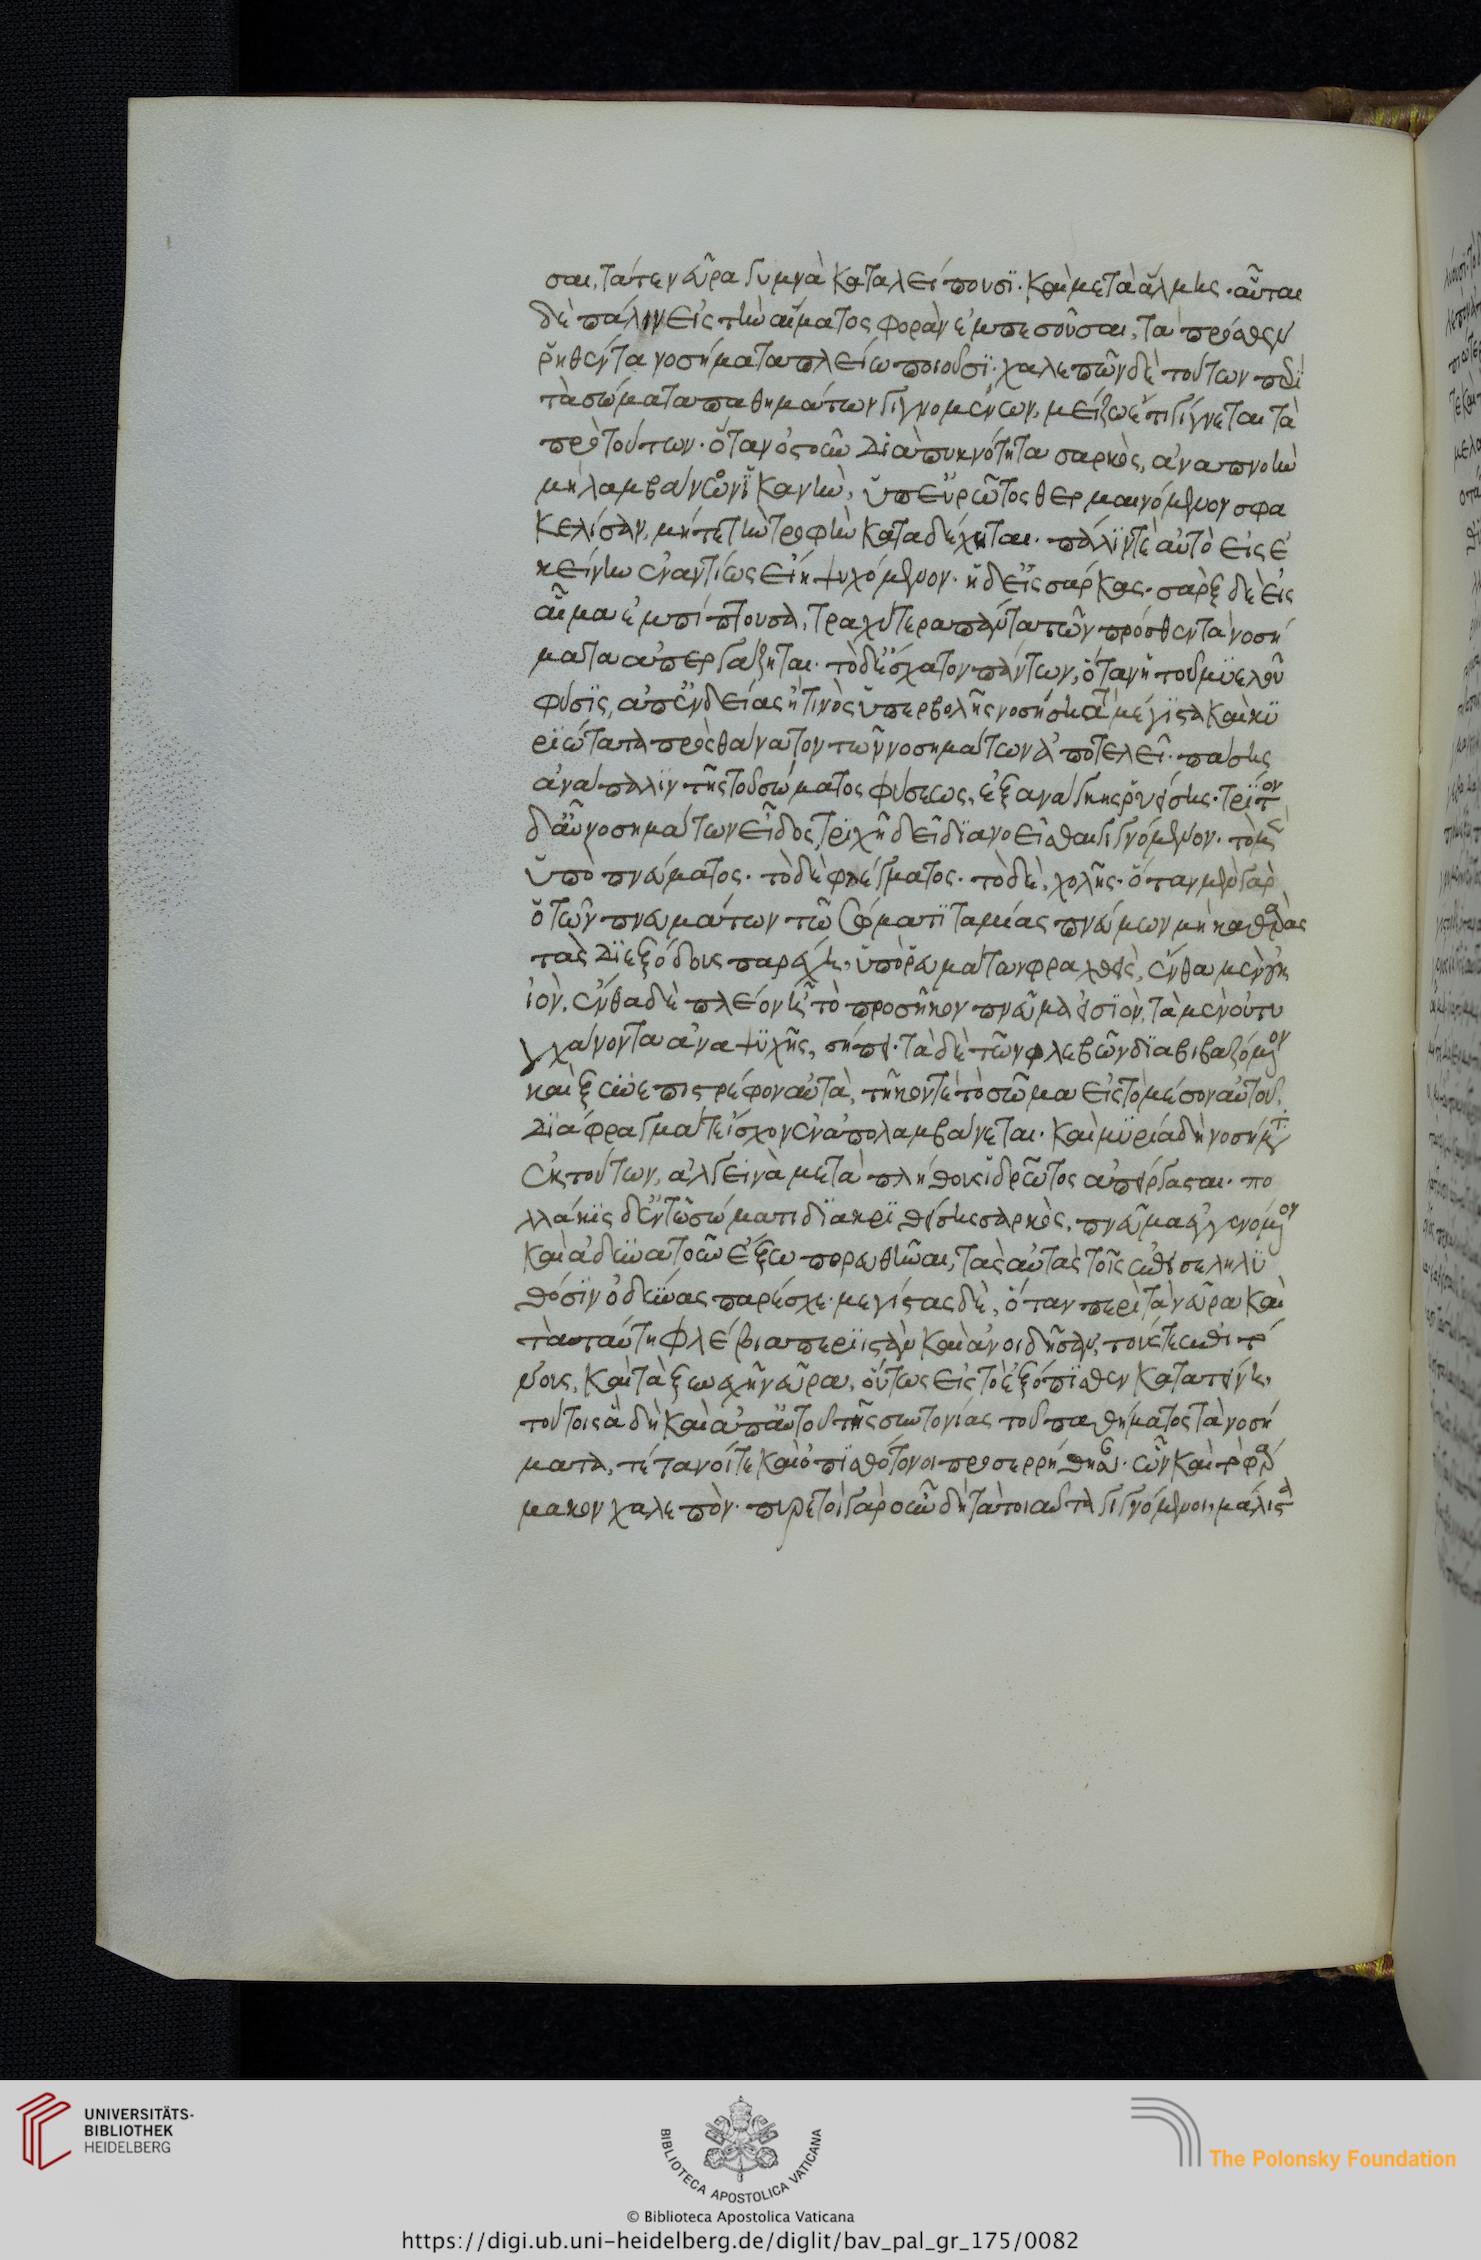 σαι, τά τε νεῦρα γυμνὰ καταλείπουσϊ· καὶ μετὰ ἅλμης· αὗται
δὲ πάλιν εἰς τὴν αἵματος φορὰν ἐμπεσοῦσαι, τὰ πρόσθεν
ῥηθέντα νοσήματα πλείω ποιοῦσϊ· χαλεπῶν δὲ τούτων περὶ
τὰ σώματα παθημάτων γιγνομένων, μείζω ἔτι γίγνεται τὰ
πρὸ τούτων· ὅταν ὀστοῦν διὰ πυκνότητα σαρκὸς, ἀναπνοὴν
μὴ λαμβάνον ἱκανὴν, ὑπ' εὐρῶτος θερμαινόμενον σφα
κελίσαν, μήτε τὴν τροφὴν καταδέχηται· πάλϊν τε αὐτὸ εἰς ἐ
κείνην ἐναντίως εἴη ψυχόμενον· ἡ δ' εἰς σάρκας· σὰρξ δὲ εἰς
αἷμα ἐμπίπτουσα, τραχύτερα πάντα τῶν πρόσθεν τὰ νοσή
ματα ἀπεργάζηται· τὸ δ' ἔσχατον πάντων, ὅταν ἡ τοῦ μϋελοῦ
φύσϊς, ἀπ' ἐνδείας ἤ τινὸς ὑπερβολῆς νοσήσῃ τὰ μέγϊστα καὶ κϋ
ρϊώτατα πρὸς θάνατον τῶν νοσημάτων ἀποτελεῖ· πάσης
ἀνάπαλϊν τῆς τοῦ σώματος φύσεως, ἐξ ανάγκης ῥυείσης· τρίτον
δ' αὖ νοσημάτων εἶδος, τρϊχῆ δεῖ δϊανοεῖσθαι γιγνόμενον· τὸ μὲν
ὑπὸ πνεύματος· τὸ δὲ φλέγματος· τὸ δὲ, χολῆς· ὅταν μὲν γὰρ
ὁ τῶν πνευμάτων τῷ σώματϊ ταμίας πνεύμων μὴ καθαρὰς
τὰς διεξόδους παράσχῃ, ὑπὸ ῥευμάτων φραχθεὶς, ἔνθα μὲν οὐκ
ἰὸν, ἔνθα δὲ πλέον ἢ τὸ προσῆκον πνεῦμα εἰσϊὸν, τὰ μὲν οὐ τυ
γχάνοντα ἀναψϋχῆς, σήπει· τὰ δὲ τῶν φλεβῶν δϊαβιβαζόμενον
καὶ ξυνεπιστρέφον αὐτὰ, τῆκόν τε τὸ σῶμα εἰς τὸ μέσον αὐτοῦ,
διάφραγμά τε ἴσχον ἐναπολαμβάνεται· καὶ μϋρία δὴ νοσήματα
ἐκ τούτων, ἀλγεινὰ μετὰ πλήθους ἱδρῶτος ἀπείργασται· πο
λλάκϊς δ' ἐν τῷ σώματι δϊακρϊθείσης σαρκὸς, πνεῦμα ἐγγενόμενον
καὶ ἀδϋνατοῦν ἔξω πορευθῆναι, τὰς αὐτὰς τοῖς ἐπεισεληλϋ
θόσϊν ὀδύνας παρέσχε· μεγίστας δὲ, ὅταν περὶ τὰ νεῦρα καὶ
τὰ ταύτη φλέβια περϊϊστὰν καὶ ἀνοιδῆσαν, τούς τε ἐπιτό
νους, καὶ τὰ ξυνεχῆ νεῦρα, οὕτως εἰς τὸ ἐξόπϊσθεν κατατείνῃ,
τούτοις ἃ δὴ καὶ ἀπ' αὐτοῦ τῆς συντονίας τοῦ παθήματος τὰ νοσή
ματα, τέτανοί τε καὶ ὀπϊσθότονοι προσερρήθησαν· ὧν καὶ τὸ φάρ
μακον χαλεπόν· πυρετοὶ γὰρ οὖν δὴ τὰ τοιαῦτα γιγνόμενοι, μάλιστα
UNIVERSITÄTS-
BIBLIOTHEK
HEIDELBERG
BIBLIOTECA APOSTOLICA VATICANA
The Polonsky Foundation
© Biblioteca Apostolica Vaticana
https://digi.ub.uni-heidelberg.de/diglit/bav_pal_gr_175/0082